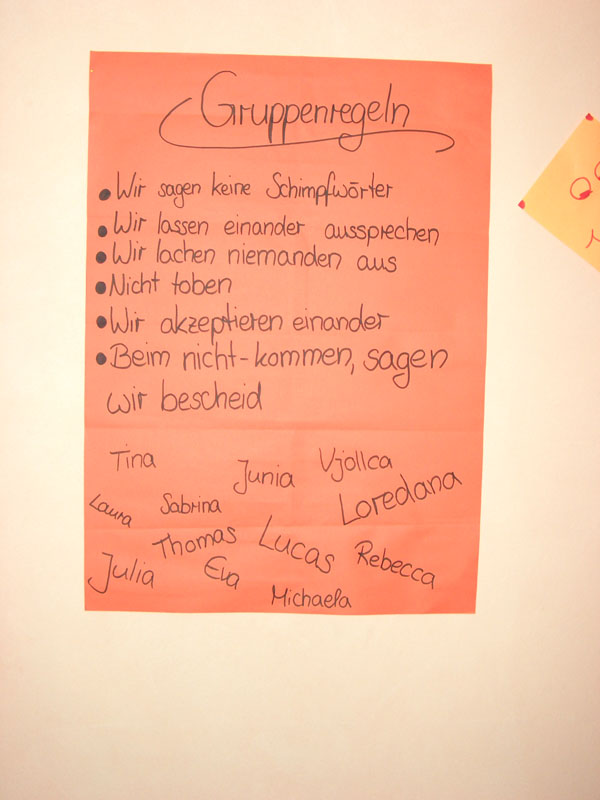 Gruppenregeln
• Wir sagen keine Schimpfwörter
• Wir lassen einander aussprechen
• Wir lachen niemanden aus
• Nicht toben
• Wir akzeptieren einander
• Beim nicht-kommen, sagen
wir bescheid
Tina Junia Vjollca
Laura Sabrina Loredana
Thomas Lucas Rebecca
Julia Eva Michaela